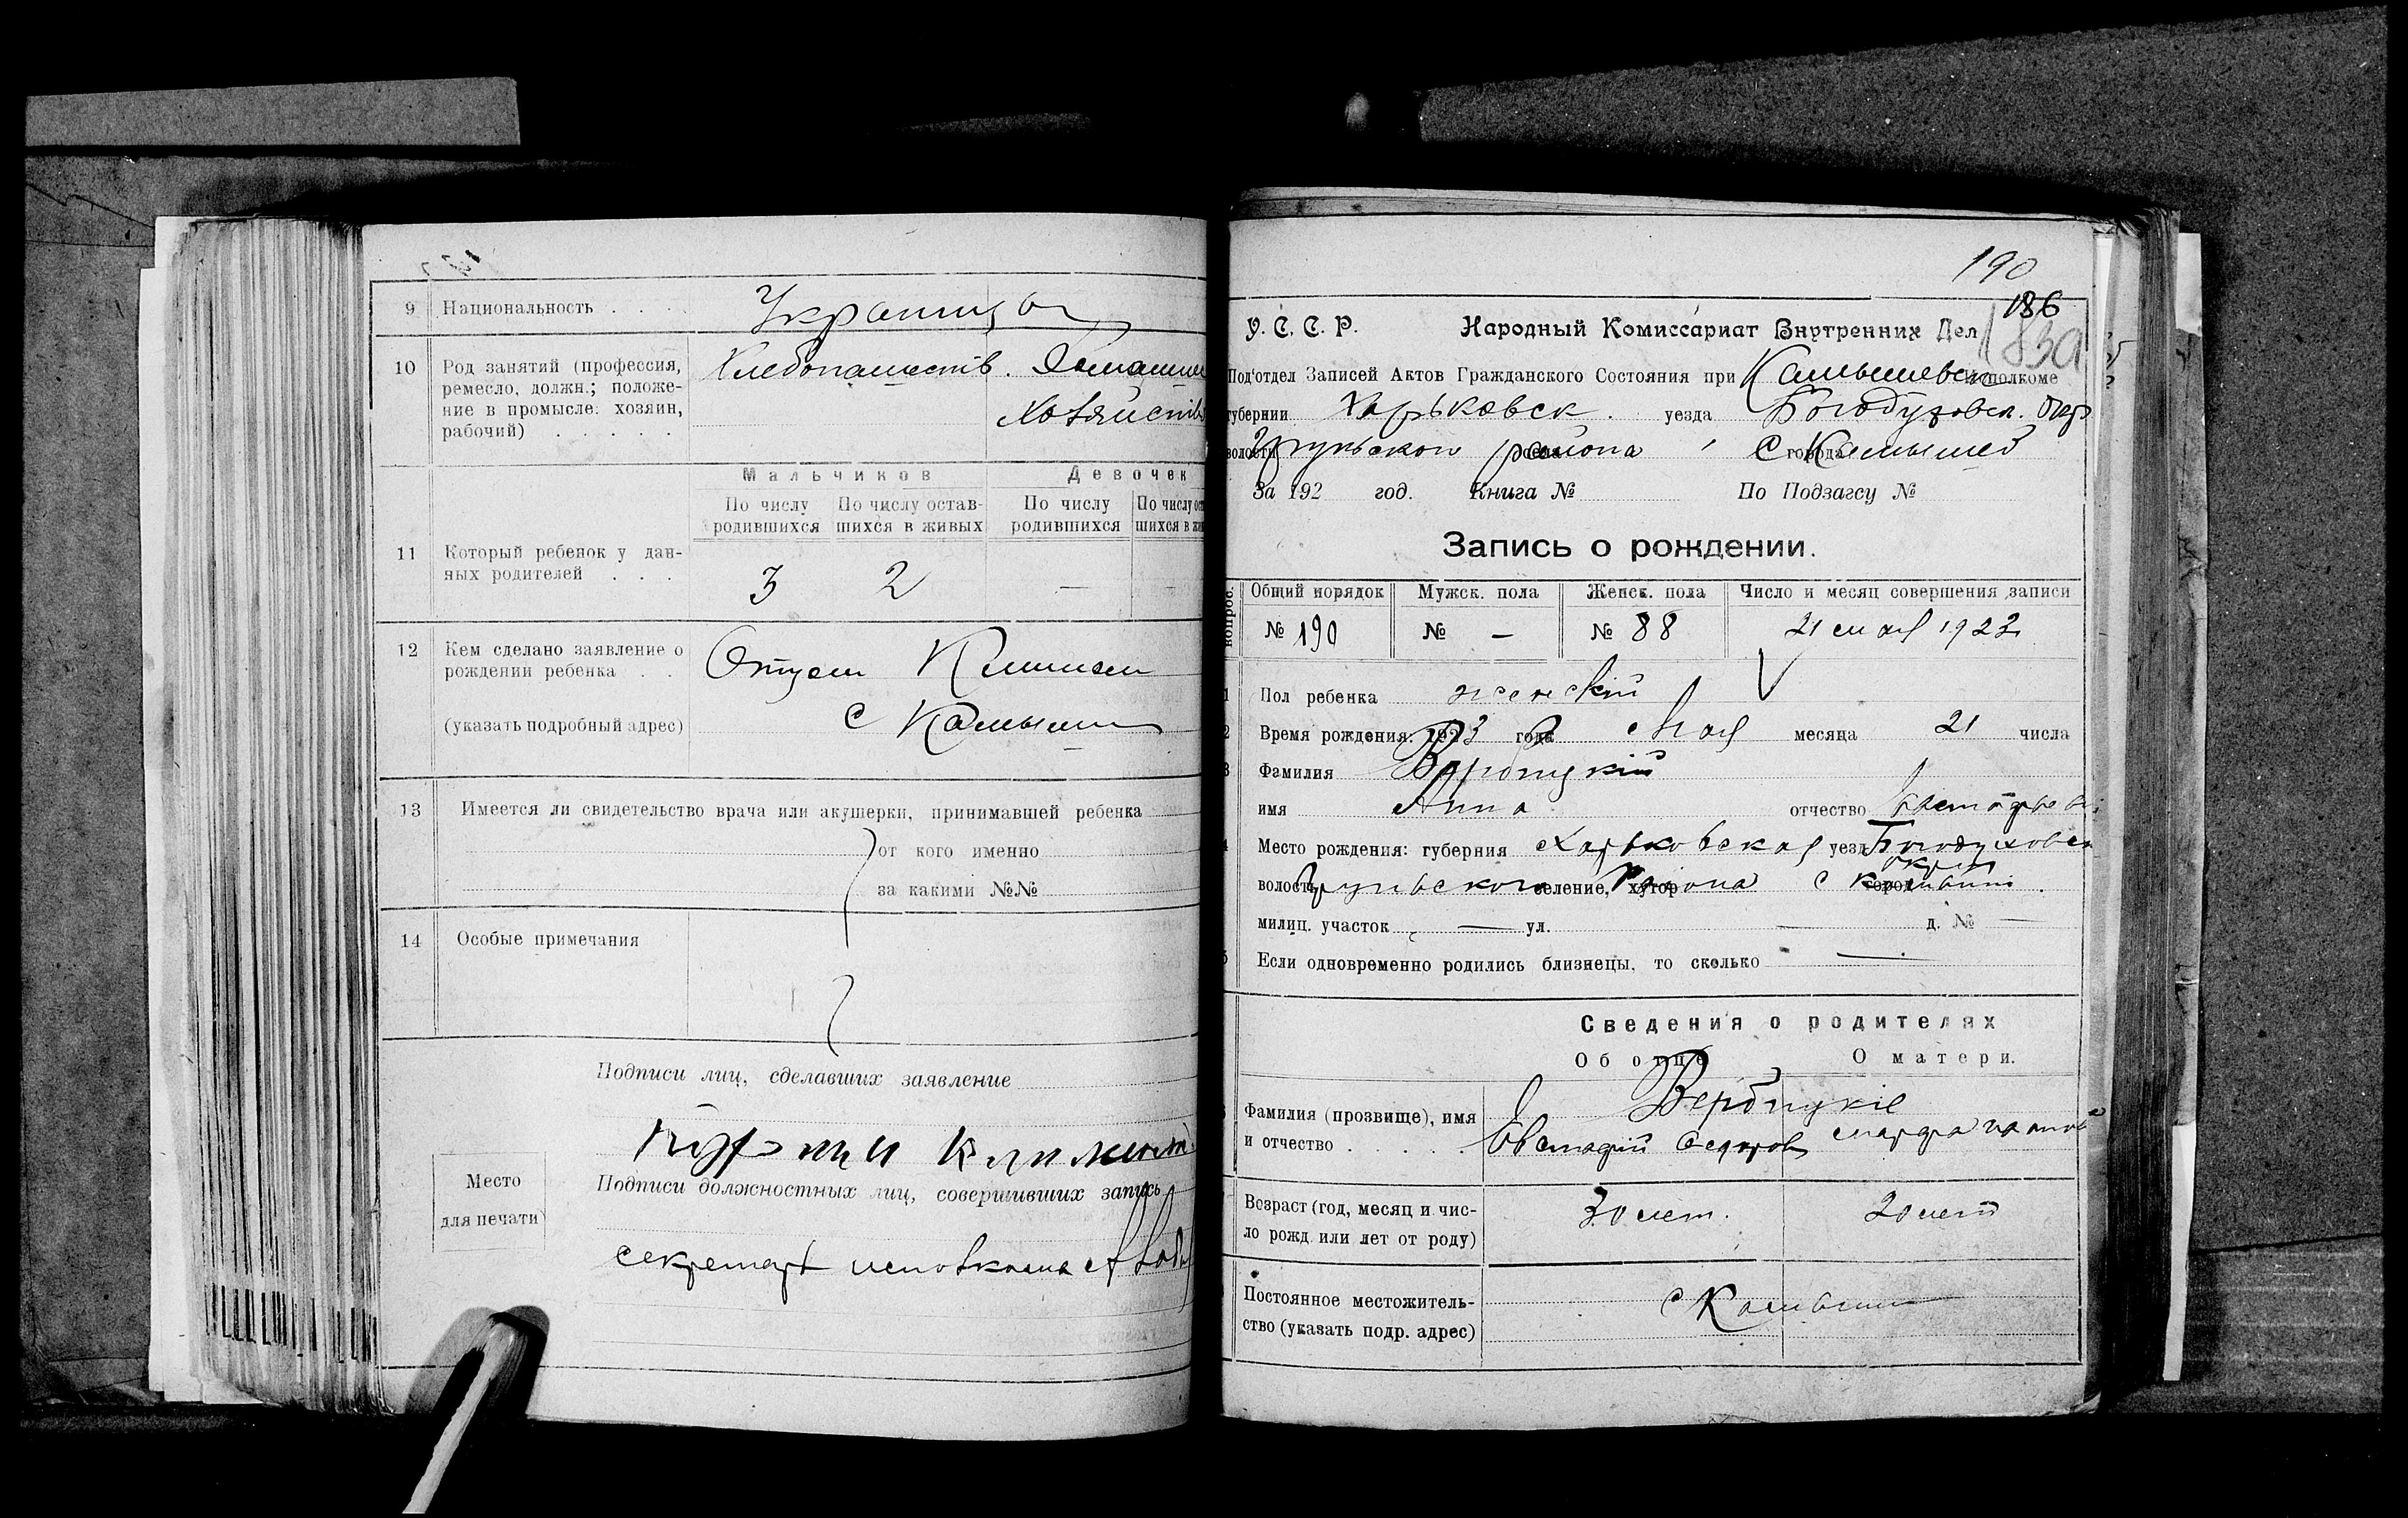 9 Национальность . . . . Украинцы
10 Род занятий (профессия, Хлебопашеств. Домашнее
ремесло, должн.; положе-
ние в промысле: хозяин, Хозяйство
рабочий) . . . . .
Мальчиков Девочек
По числу По числу остав- По числу По числу ост
родившихся шихся в живых родившихся шихся в жи
11 Который ребенок у дан-
ных родителей . . . 3 2 — —
12 Кем сделано заявление о Отцем
рождении ребенка . .
(указать подробный адрес) с Камыши
13 Имеется ли свидетельство врача или акушерки, принимавшей ребенка
от кого именно
за какими №№
14 Особые примечания
Подписи лиц, сделавших заявление
Место
для печати
Подписи должностных лиц, совершивших запись
секретарь исполкома
190
186
У. С. С. Р. Народный Комиссариат Внутренних Дел
Под'отдел Записей Актов Гражданского Состояния при Камышевск исполкоме
губернии Харьковск. уезда Богодуховск. окр
волости района с города Камышев
За 192 год. Книга № По Подзагсу №
Запись о рождении.
вопрос. Общий порядок Мужск. пола Женск. пола Число и месяц совершения записи
№ 190 № — № 88 21 мая 1923
1 Пол ребенка женский
2 Время рождения: 1923 года мая месяца 21 числа
3 Фамилия Вербицкий
имя Анна отчество
4 Место рождения: губерния Харьковская уезд Богодуховск
окр
волость селение, хутор района с город Камыши
милиц. участок — ул. — д. № —
5 Если одновременно родились близнецы, то сколько —
Сведения о родителях
Об отце О матери.
Вербицкие
Фамилия (прозвище), имя
и отчество . . . . . Евстафий Федоров Марфа
Возраст (год, месяц и чис- 30 лет. 20 лет
ло рожд. или лет от роду)
Постоянное местожитель- с Камыши
ство (указать подр. адрес)